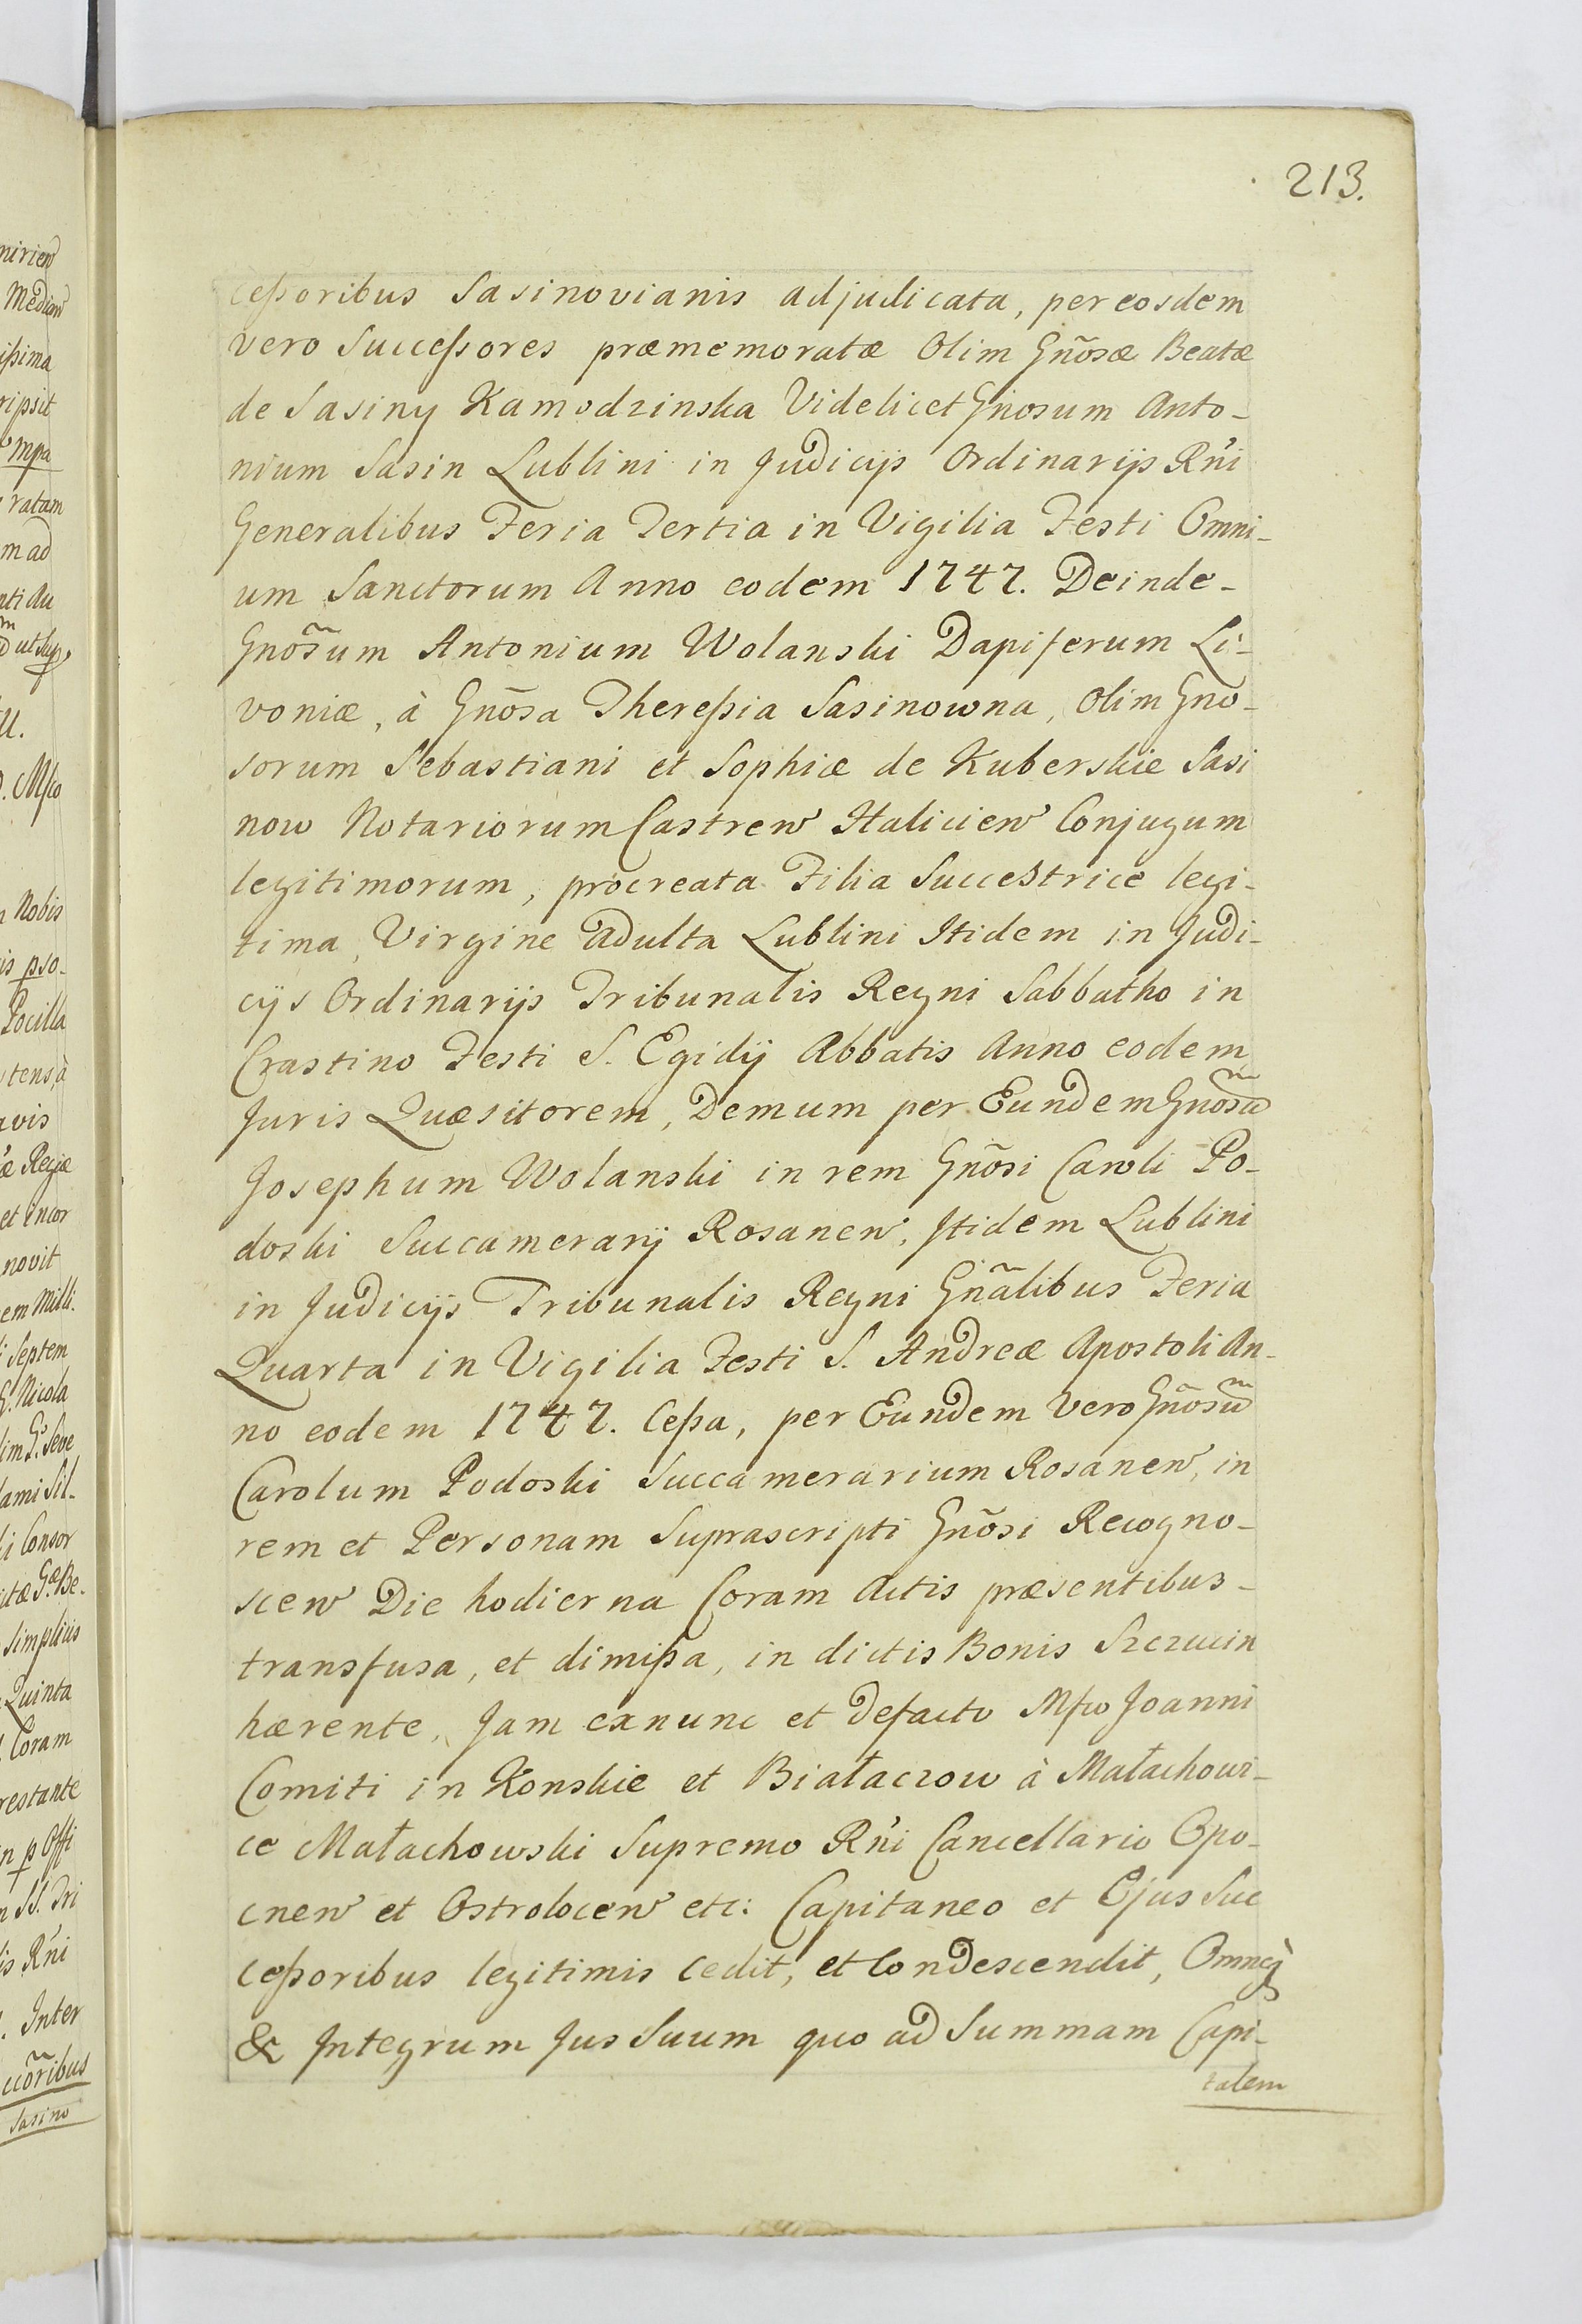 213.
cessoribus Sasinovianis adjudicata, per eosdem
vero Successores præmemoratæ Olim Gñosæ Beatæ
de Sasiny Kamodzinska Videlicet Gnosum Anto-
nium Sasin Lublini in Judicijs Ordinarijs R'ni
Generalibus Feria Tertia in Vigilia Festi Omni-
um Sanctorum Anno eodem 1747. Deinde-
Gnõsum Antonium Wolanski Dapiferum Li-
voniæ, à Gñosa Theressia Sasinowna, Olim Gno-
sorum Sebastiani et Sophiæ de Kuberskie Sasi
now Notariorum Castren Halicien Conjugum
legitimorum, procreata Filia Successtrice legi-
tima, Virgine adulta Lublini Itidem in Judi-
cijs Ordinarijs Tribunalis Regni Sabbatho in
Crastino Festi S. Egidij Abbatis Anno eodem
Juris Quæsitorem, Demum per Eundem Gnõsum
Josephum Wolanski in rem Gñosi Caroli Po-
doski Succamerarij Rosanen, Itidem Lublini
in Judicijs Tribunalis Regni Gñalibus Feria
Quarta in Vigilia Festi S. Andreæ Apostoli An-
no eodem 1747. Cessa, per Eundem vero Gñosum
Carolum Podoski Succamerarium Rosanen, in
rem et Personam Suprascripti Gñosi Recogno-
scen Die hodierna Coram Actis præsentibus-
transfusa, et dimissa, in dictis Bonis Szczucin
hærente, Jam exnunc et defacto Mfco Joanni
Comiti in Konskie et Białaczow à Małachowi-
ce Małachowski Supremo R'ni Cancellario Opo-
cnen et Ostrolocen etc: Capitaneo et Ejus Suc
cessoribus legitimis cedit, et Condescendit, Omneq̀
& Integrum Jus Suum quo ad Summam Capi-
talem